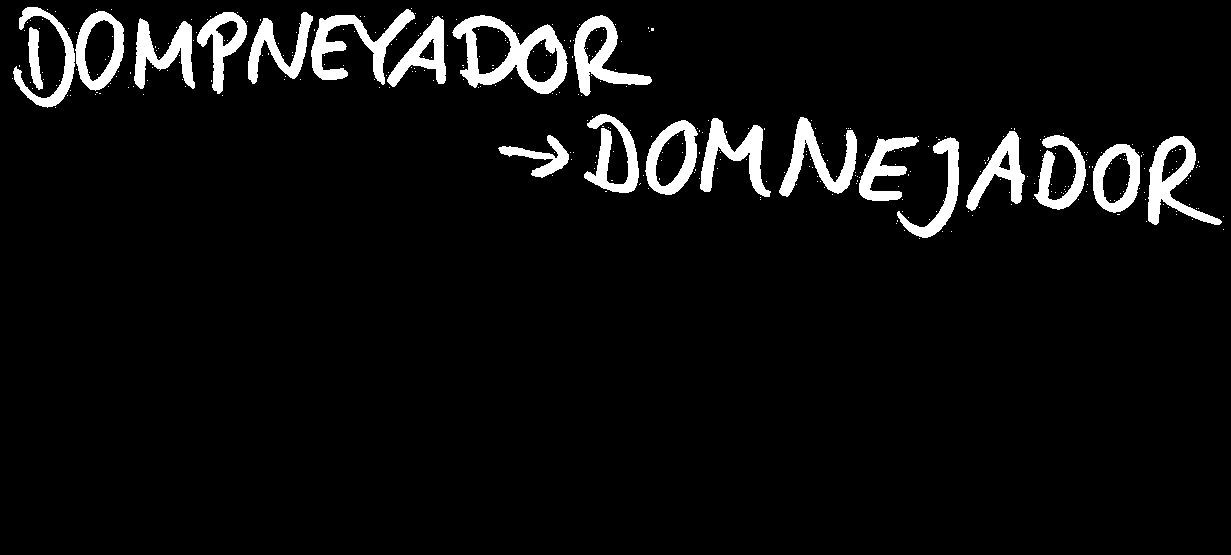 DOMPNEYADOR
→ DOMNEJADOR